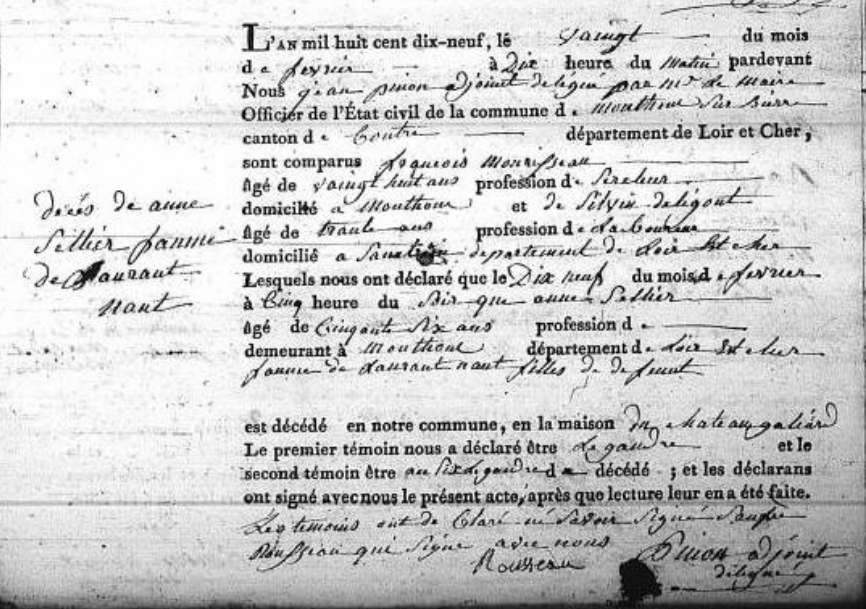 L'AN mil huit cent dix-neuf, lé vaingt du mois
de fevrier à Dix heure du matin pardevant
Nous jean pinon adjoint deligué par mr le maire
Officier de l'État civil de la commune de Monthou Sur Bierre
canton de Contre département de Loir et Cher,
sont comparus francois
âgé de vaingt huit ans profession de
domicilié a Monthou et de Silvin deligout
âgé de trante ans profession de Laboureur
domicilié à departement de Loir Et cher
Lesquels nous ont déclaré que le Dix neuf du mois de fevrier
à Cinq heure du Soir que anne Sellier
âgé de Cinqante Six ans profession d
demeurant à Monthou département de Loir Et cher
fanme de Laurant nant filles de defunt
est décédé en notre commune, en la maison du chateau galiard
Le premier témoin nous a déclaré être Le gandre et le
second témoin être décédé ; et les déclarans
ont signé avec nous le présent acte, après que lecture leur en a été faite.
Les temoins ont de Claré né Savoir Signé
qui Signe avec nous
Rousseau Pinon adjoint
deligué
décés de anne
Sellier fanme
de Laurant
nant